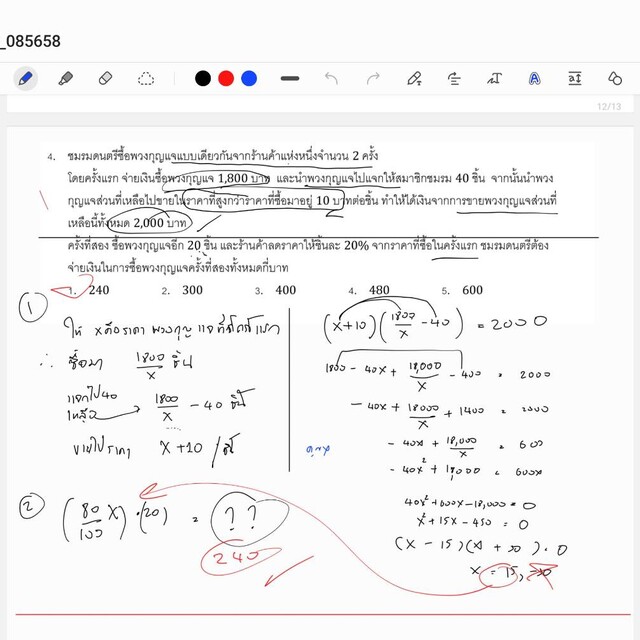 _085658
12/13
4. ชมรมดนตรีซื้อพวงกุญแจแบบเดียวกันจากร้านค้าแห่งหนึ่งจำนวน 2 ครั้ง
โดยครั้งแรก จ่ายเงินซื้อพวงกุญแจ 1,800 บาท และนำพวงกุญแจไปแจกให้สมาชิกชมรม 40 ชิ้น จากนั้นนำพวง
กุญแจส่วนที่เหลือไปขายในราคาที่สูงกว่าราคาที่ซื้อมาอยู่ 10 บาทต่อชิ้น ทำให้ได้เงินจากการขายพวงกุญแจส่วนที่
เหลือนี้ทั้งหมด 2,000 บาท
ครั้งที่สอง ซื้อพวงกุญแจอีก 20 ชิ้น และร้านค้าลดราคาให้ชิ้นละ 20% จากราคาที่ซื้อในครั้งแรก ชมรมดนตรีต้อง
จ่ายเงินในการซื้อพวงกุญแจครั้งที่สองทั้งหมดกี่บาท
1. 240 2. 300 3. 400 4. 480 5. 600
①
ให้ x คือราคา พวงกุญแจที่ซื้อครั้งแรก
∴ ซื้อมา 1800/x ชิ้น
แจกไป 40
เหลือ → 1800/x - 40 ชิ้น
ขายไปราคา x+10 / ชิ้น
(x+10)(1800/x - 40) = 2000
1800 - 40x + 18,000/x - 400 = 2000
- 40x + 18000/x + 1400 = 2000
- 40x + 18,000/x = 600
คูณ x
- 40x² + 18,000 = 600x
40x² + 600x - 18,000 = 0
x² + 15x - 450 = 0
(x - 15)(x + 30) = 0
x = 15, -30
② (80/100 x) · (20) = ??
240